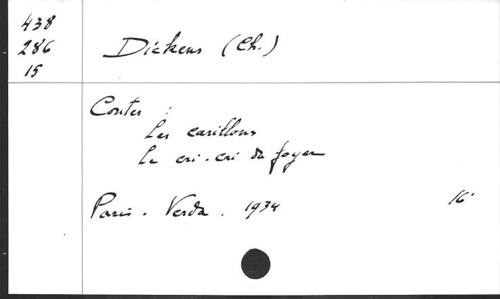 438
286
15
Dickens (Ch.)
Contes :
Les carillons
Le cri-cri du foyer
Paris. Verda. 1934 16°